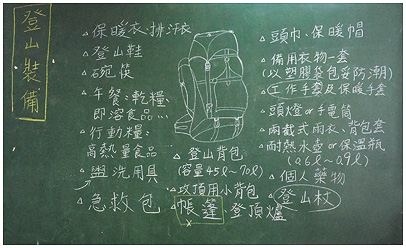 登山裝備
△保暖衣、排汗衣
△登山鞋
△碗筷
△午餐:乾糧、
即溶食品...
△行動糧:
高熱量食品
△盥洗用具
△急救包
△登山背包
(容量45ℓ~70ℓ)
△攻頂用小背包
△帳篷、登頂爐
△頭巾、保暖帽
△備用衣物一套
(以塑膠袋包妥防潮)
△工作手套及保暖手套
△頭燈or手電筒
△兩截式雨衣、背包套
△耐熱水壺or保溫瓶
(0.6ℓ~0.9ℓ)
△個人藥物
△登山杖